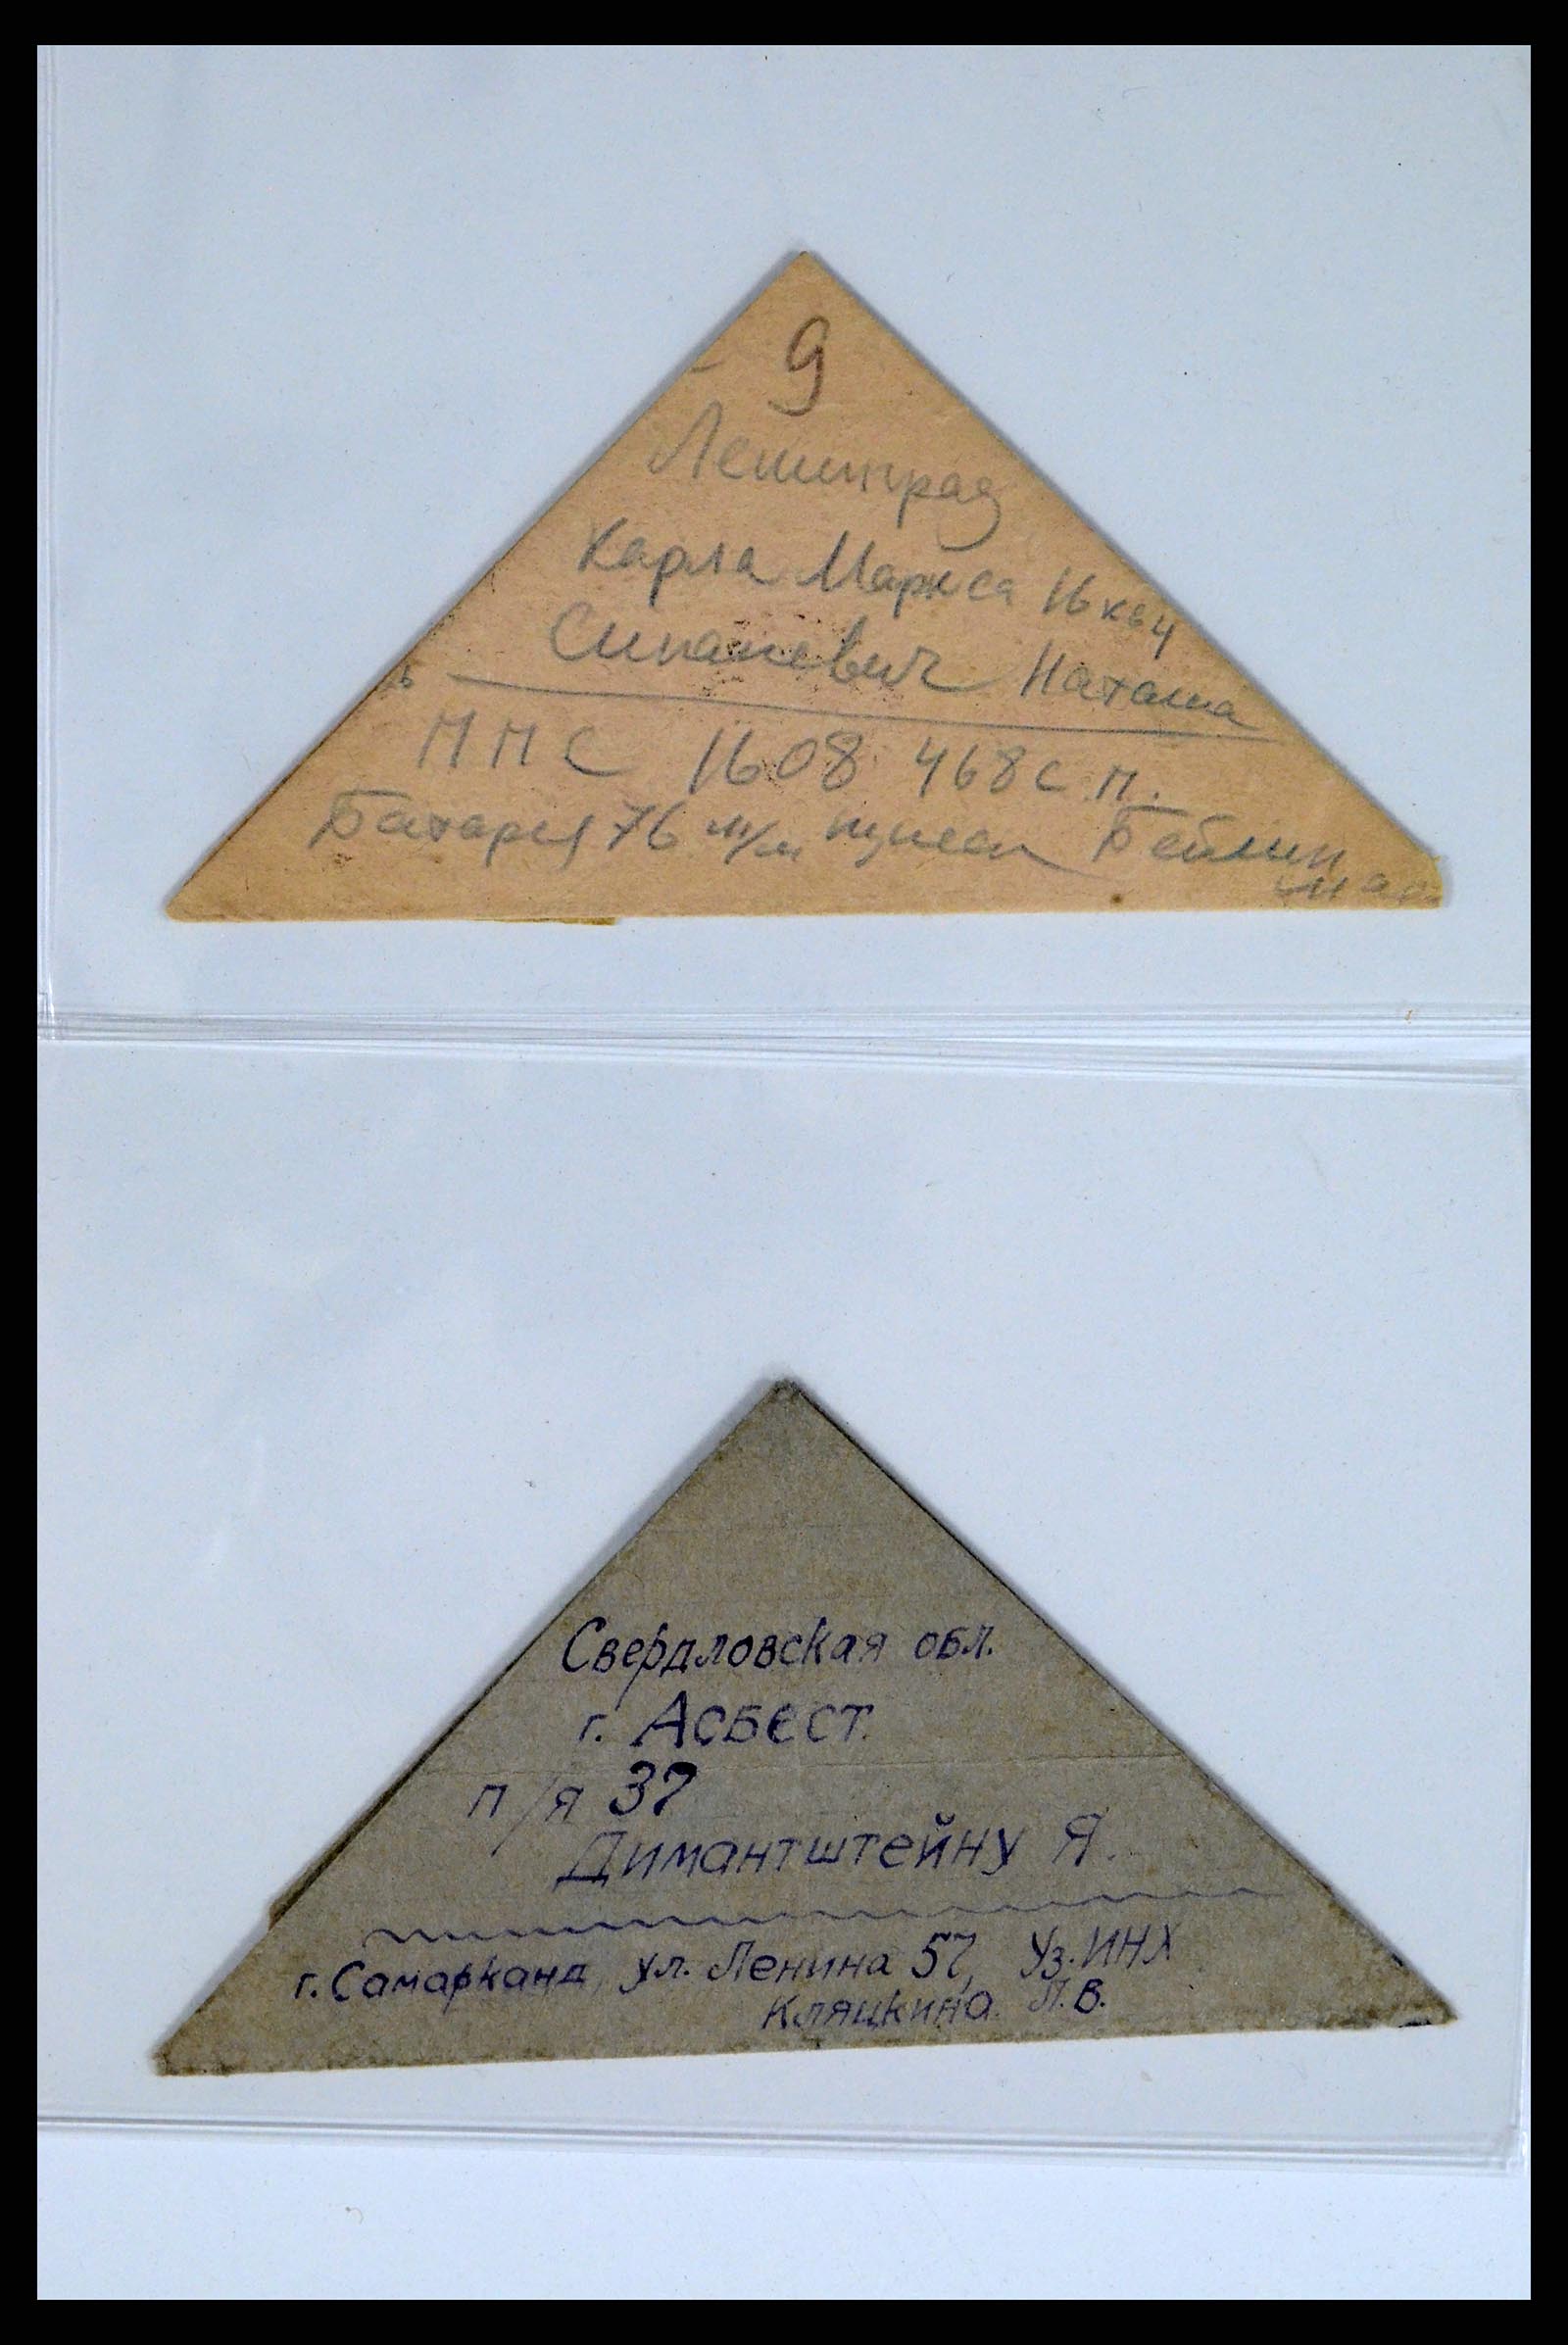 9
Ленинград
Карла Маркса 16 кв 4
Наташа
ППС 1608 468 с.п.
Батарея 76 м/м пушек
Свердловская обл.
г. Асбест
п/я 37
Димантштейну Я.
г. Самарканд, ул. Ленина 57, Уз.ИНХ
Кляцкина Л.В.